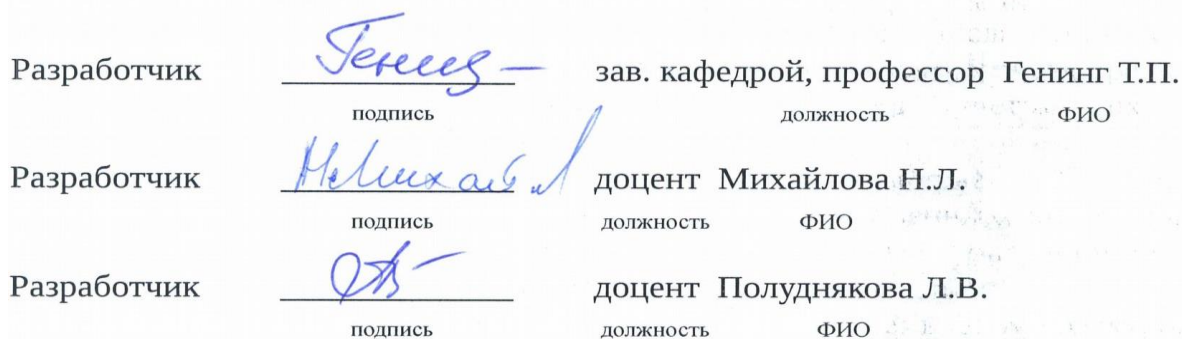 Разработчик Гениг зав. кафедрой, профессор Генинг Т.П.
подпись должность ФИО
Разработчик доцент Михайлова Н.Л.
подпись должность ФИО
Разработчик доцент Полуднякова Л.В.
подпись должность ФИО